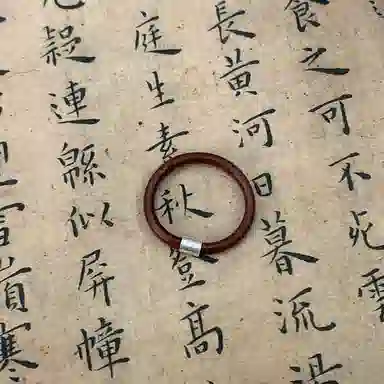 食之可不死雲
長黄河日暮流
庭生素秋登高
疑連緜似屏幢
寒